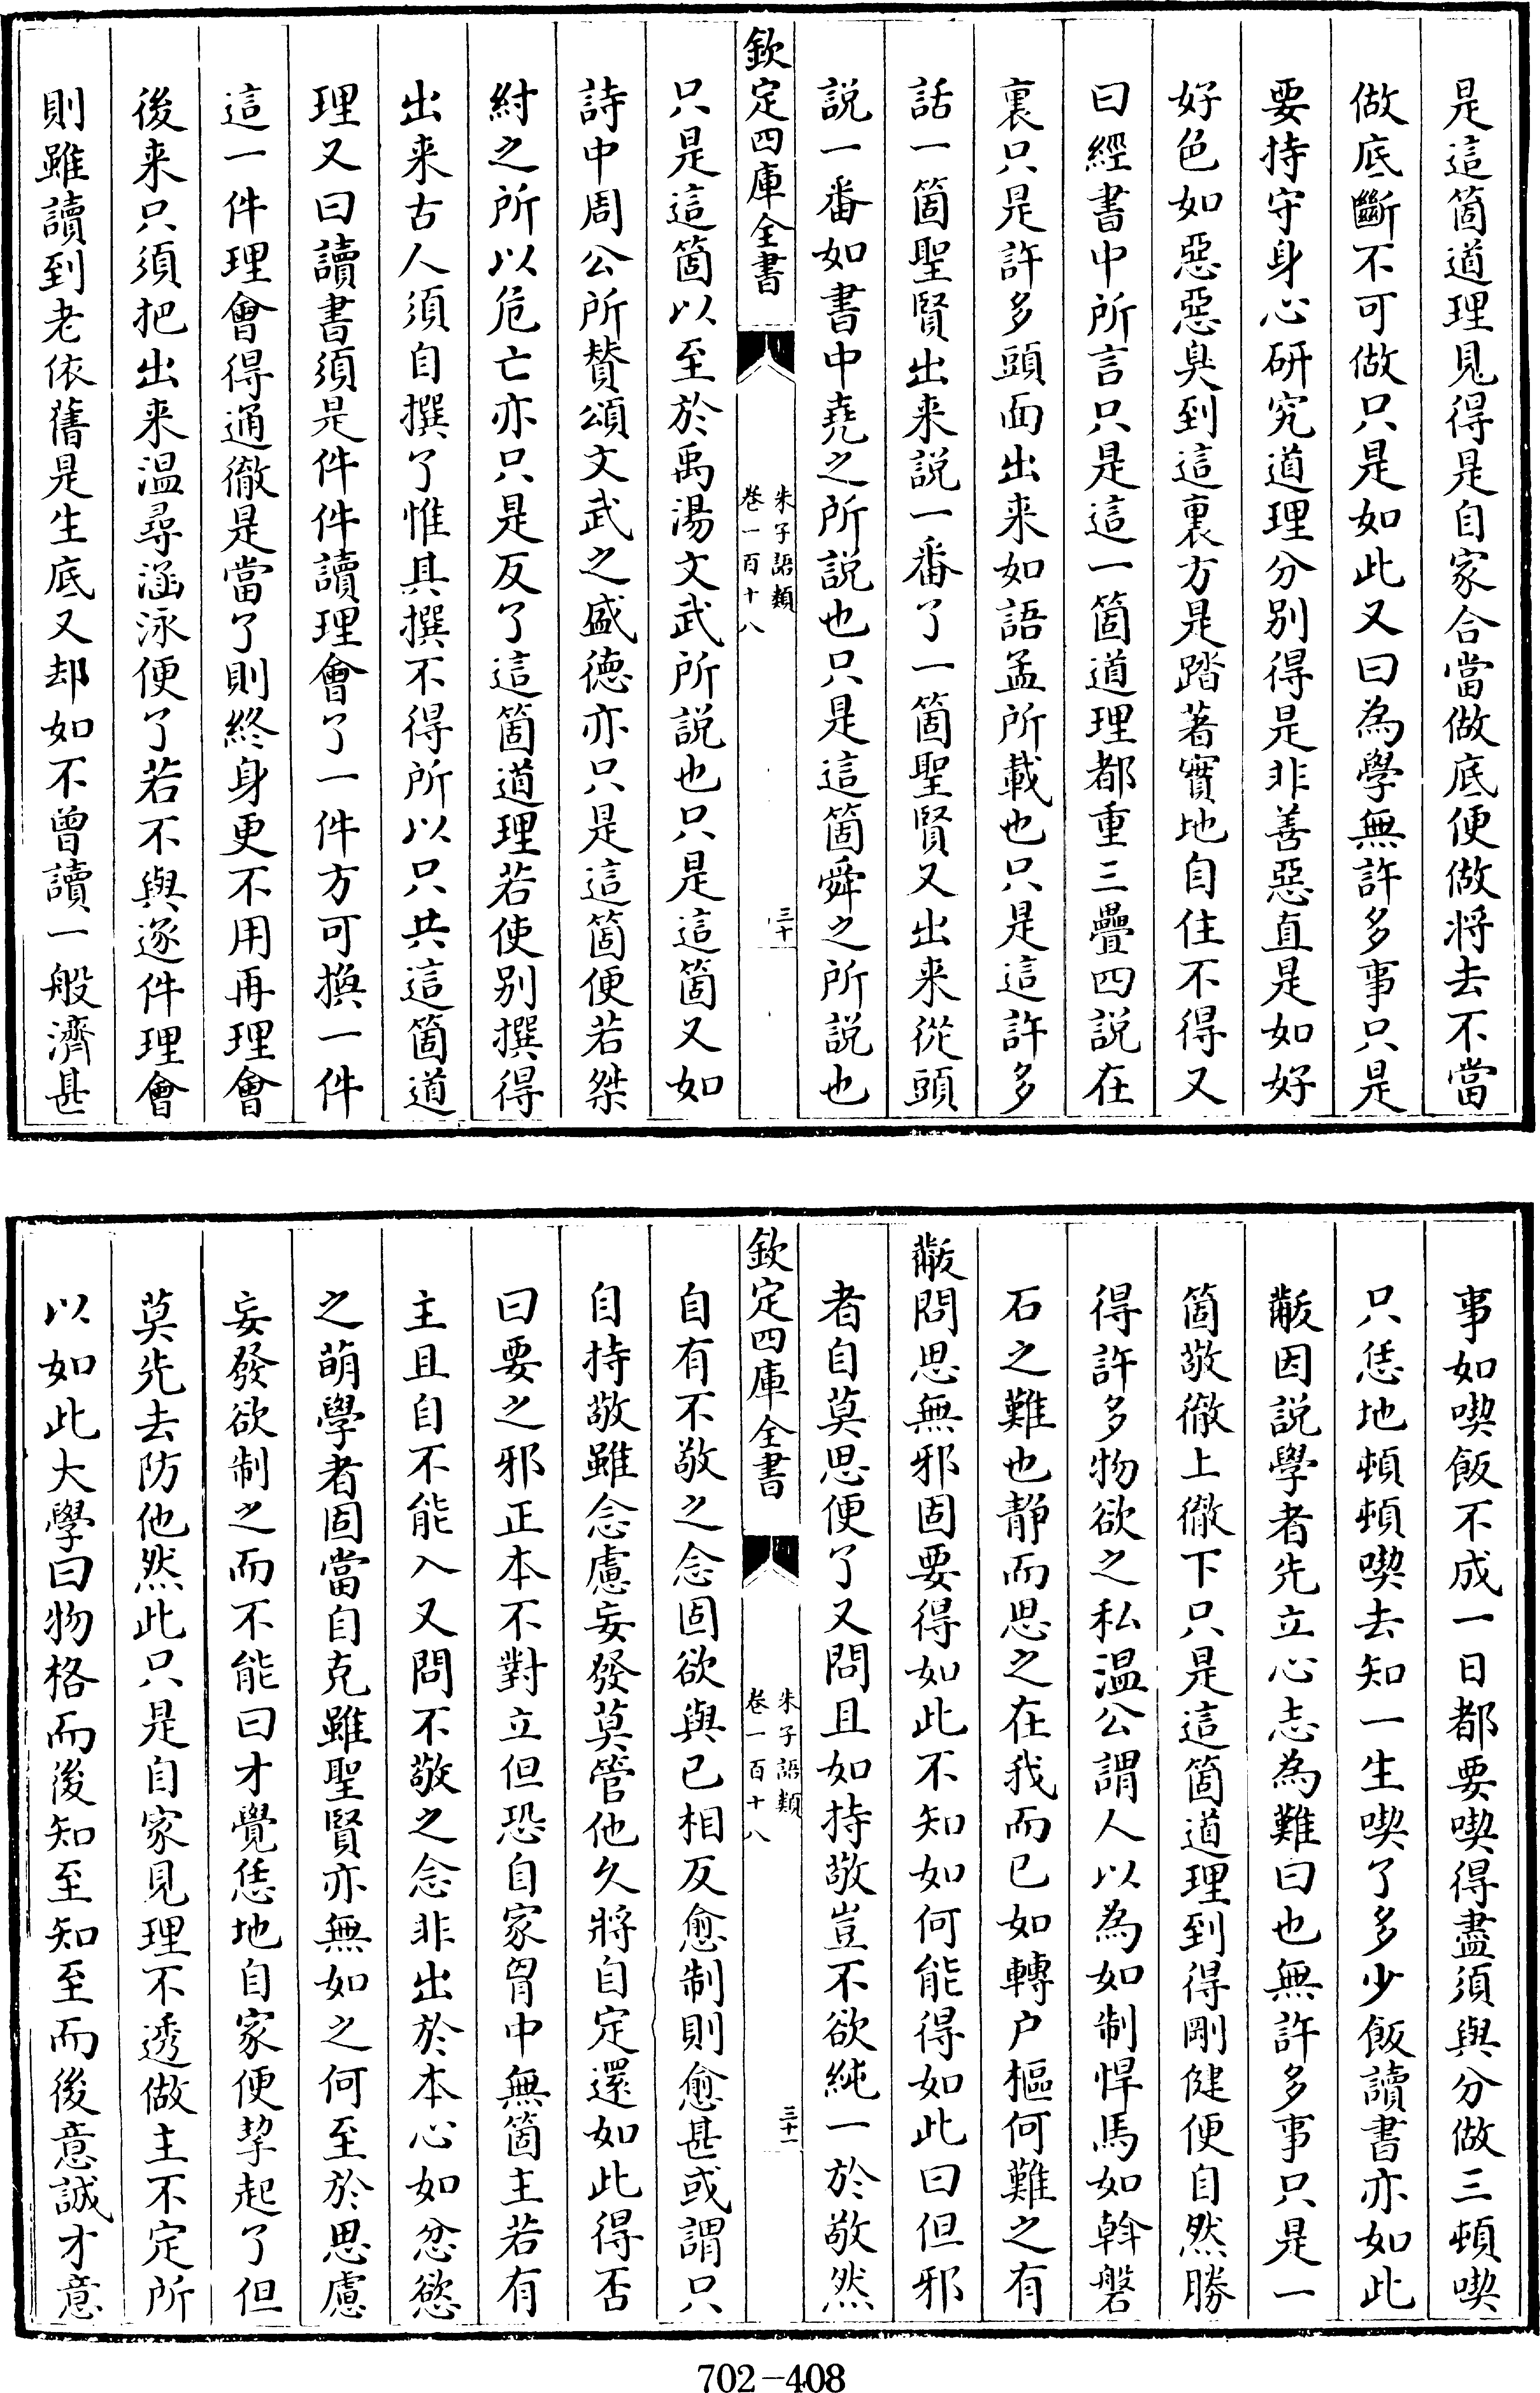 是這箇道理見得是自家合當做底便做將去不當
做底斷不可做只是如此又曰為學無許多事只是
要持守身心研究道理分别得是非善惡直是如好
好色如惡惡臭到這裏方是踏著實地自住不得又
曰經書中所言只是這一箇道理都重三疊四說在
裏只是許多頭面出来如語孟所載也只是這許多
話一箇聖賢出来説一番了一箇聖賢又出来從頭
説一番如書中堯之所説也只是這箇舜之所説也
欽定四庫全書
朱子語類
卷一百十八
三十
只是這箇以至於禹湯文武所説也只是這箇又如
詩中周公所賛頌文武之盛德亦只是這箇便若桀
紂之所以危亡亦只是反了這箇道理若使别撰得
出来古人須自撰了惟其撰不得所以只共這箇道
理又曰讀書須是件件讀理會了一件方可換一件
這一件理會得通徹是當了則終身更不用再理會
後来只須把出来温尋涵泳便了若不與逐件理會
則雖讀到老依舊是生底又却如不曾讀一般濟甚
事如喫飯不成一日都要喫得盡須與分做三頓喫
只恁地頓頓喫去知一生喫了多少飯讀書亦如此
黻因説學者先立心志為難曰也無許多事只是一
箇敬徹上徹下只是這箇道理到得剛健便自然勝
得許多物欲之私温公謂人以為如制悍馬如斡磐
石之難也静而思之在我而已如轉户樞何難之有
黻問思無邪固要得如此不知如何能得如此曰但邪
者自莫思便了又問且如持敬豈不欲純一於敬然
欽定四庫全書
朱子語類
卷一百十八
三十一
自有不敬之念固欲與己相反愈制則愈甚或謂只
自持敬雖念慮妄發莫管他久將自定還如此得否
曰要之邪正本不對立但恐自家胷中無箇主若有
主且自不能入又問不敬之念非出於本心如忿慾
之萌學者固當自克雖聖賢亦無如之何至於思慮
妄發欲制之而不能曰才覺恁地自家便挈起了但
莫先去防他然此只是自家見理不透做主不定所
以如此大學曰物格而後知至知至而後意誠才意
702-408